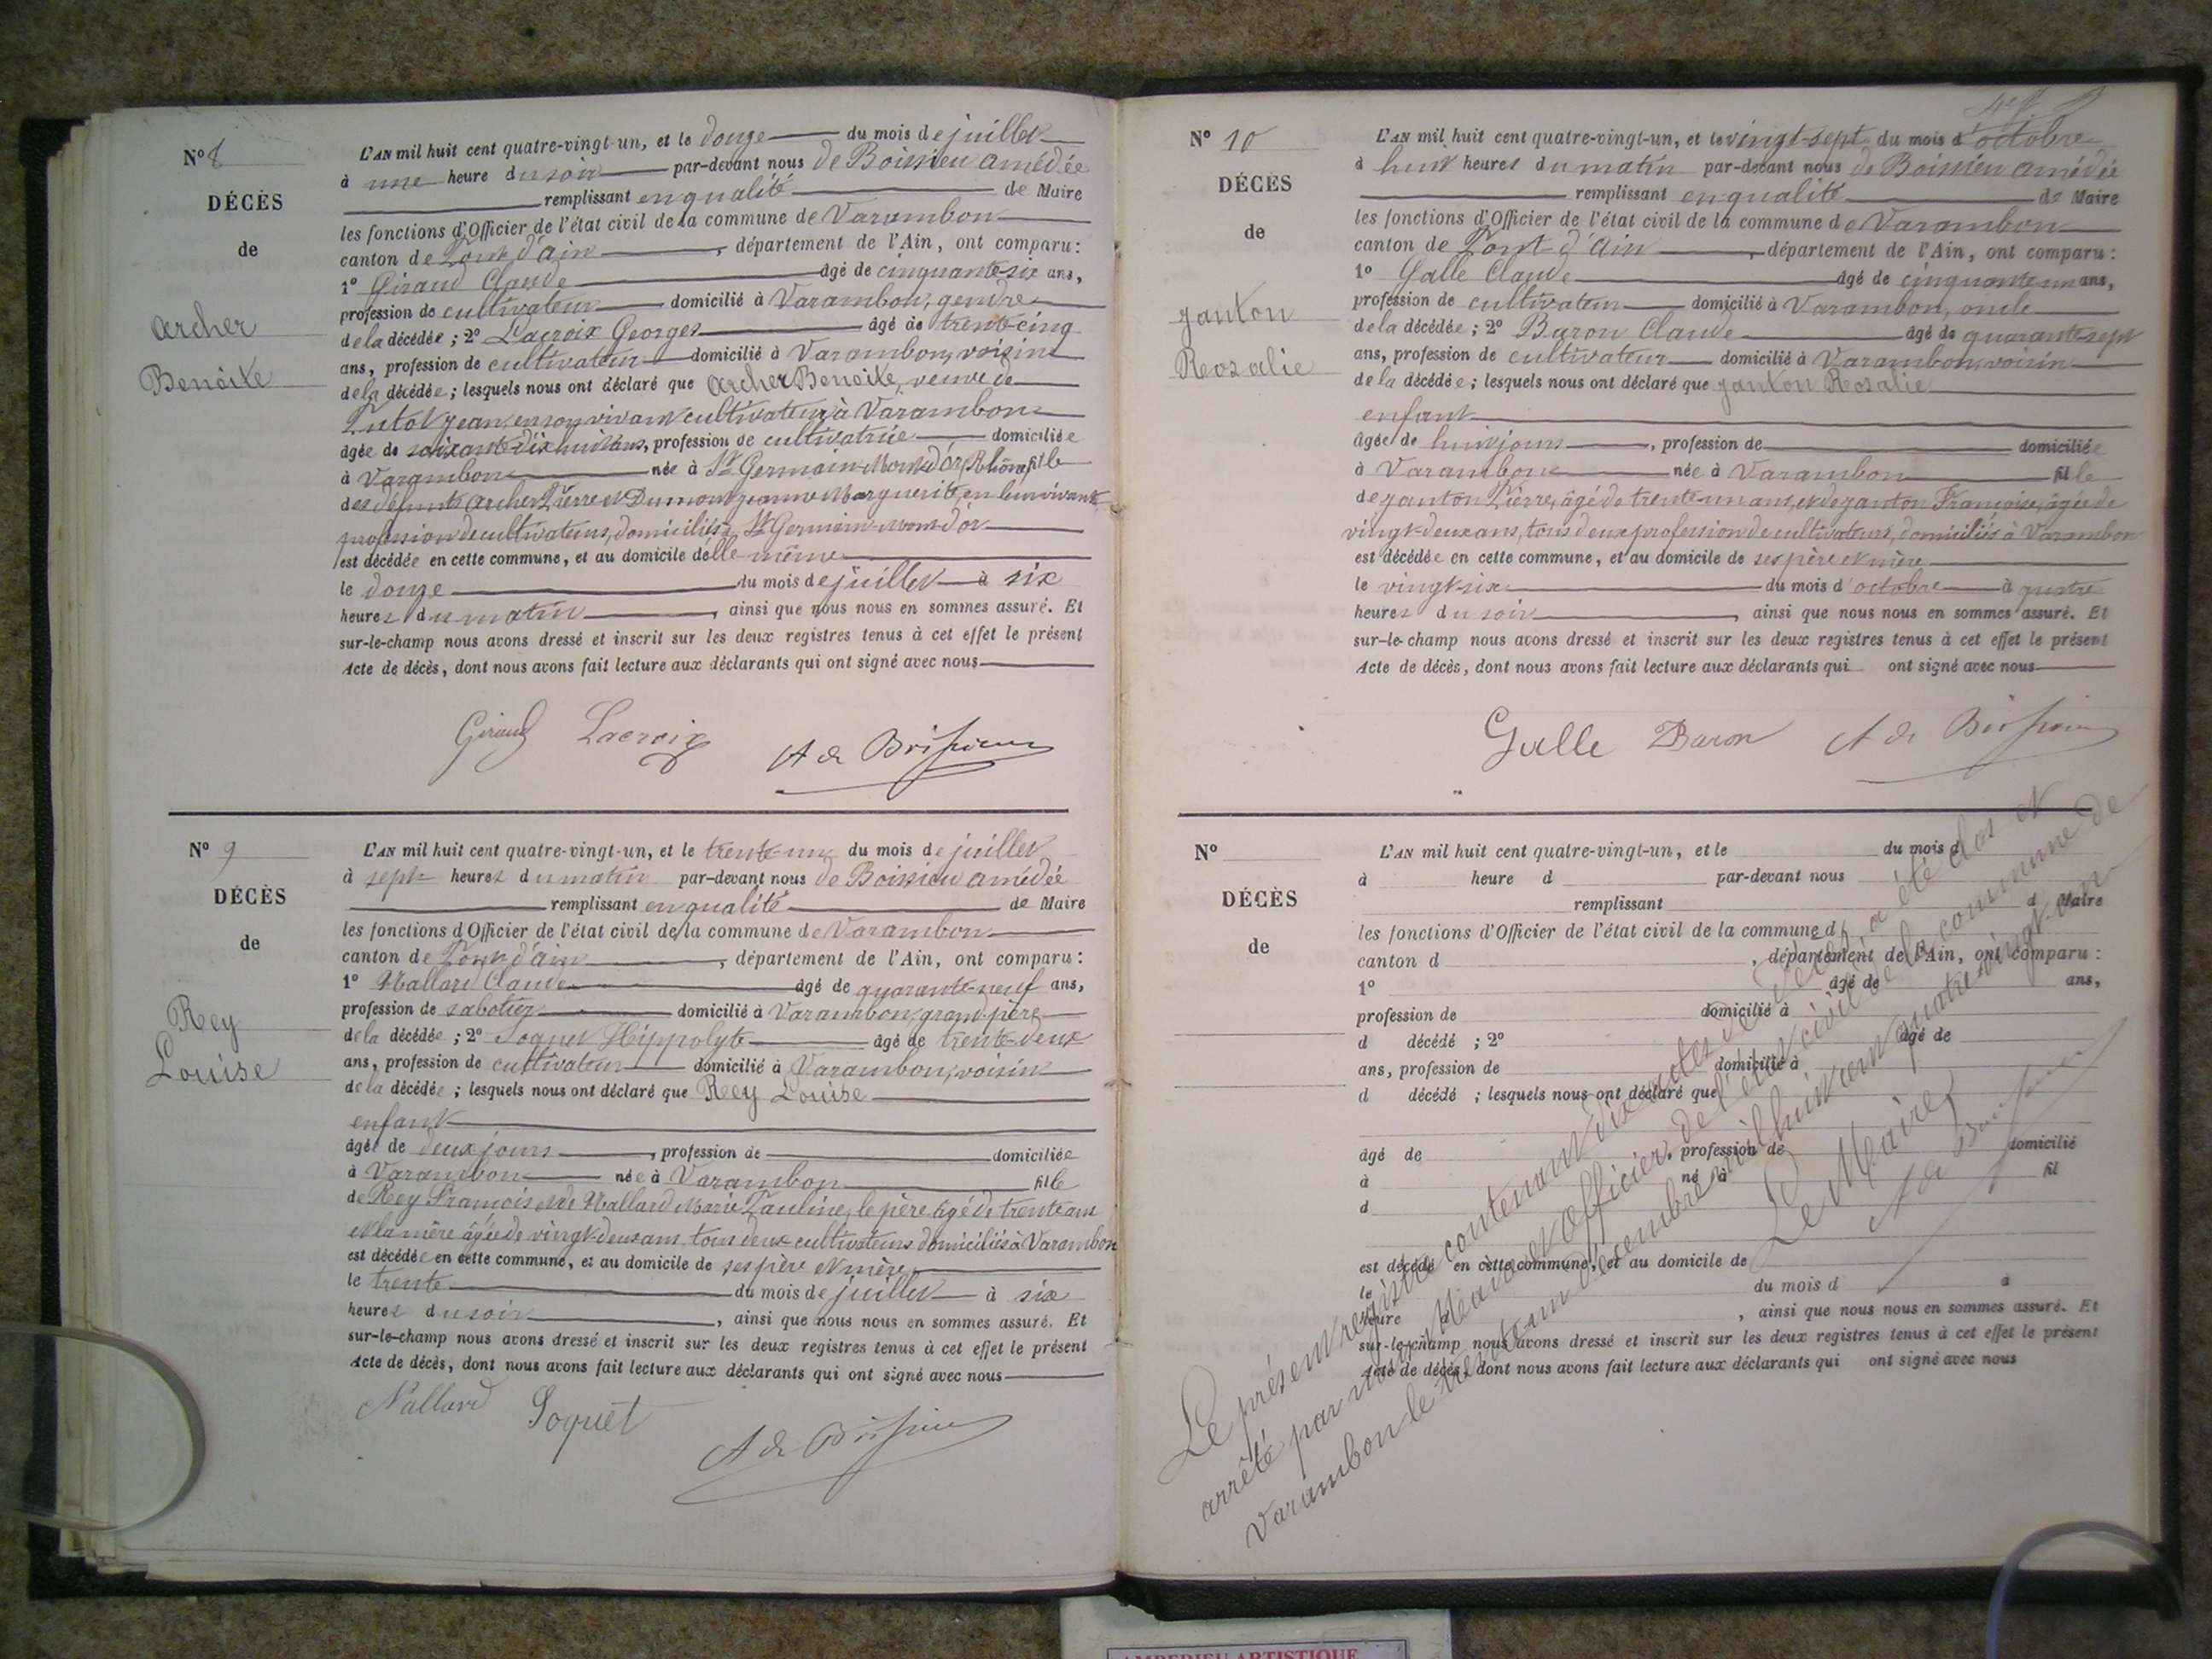 N° 8
DÉCÈS
de
Archer
Benoite
L'AN mil huit cent quatre-vingt-un, et le douze du mois de juillet
à une heure du soir par-devant nous de Boissieu Amédée
remplissant en qualité de Maire
les fonctions d'Officier de l'état civil de la commune de Varambon
canton de Pont d'Ain, département de l'Ain, ont comparu :
1° Giraud Claude âgé de cinquante-six ans,
profession de cultivateur domicilié à Varambon, gendre
de la décédée ; 2° Lacroix Georges âgé de trente-cinq
ans, profession de cultivateur domicilié à Varambon, voisin
de la décédée ; lesquels nous ont déclaré que Archer Benoite, veuve de
Jean, en son vivant cultivateur à Varambon
âgée de soixante-dix huit ans, profession de cultivatrice domiciliée
à Varambon née à St Germain Mont d'or, Rhône fille
des défunts Archer Pierre et Dumont Jeanne Marguerite, en leur vivants
profession de cultivateurs, domiciliés à St Germain Mont d'or
est décédée en cette commune, et au domicile d'elle même
le douze du mois de juillet à six
heures du matin, ainsi que nous nous en sommes assuré. Et
sur-le-champ nous avons dressé et inscrit sur les deux registres tenus à cet effet le présent
Acte de décès, dont nous avons fait lecture aux déclarants qui ont signé avec nous
Giraud Lacroix A de Boissieu
N° 9
DÉCÈS
de
Rey
Louise
L'AN mil huit cent quatre-vingt-un, et le trente-un du mois de juillet
à sept heures du matin par-devant nous de Boissieu Amédée
remplissant en qualité de Maire
les fonctions d'Officier de l'état civil de la commune de Varambon
canton de Pont d'Ain, département de l'Ain, ont comparu :
1° Nallard Claude âgé de quarante-neuf ans,
profession de sabotier domicilié à Varambon, grand-père
de la décédée ; 2° Soquet Hippolyte âgé de trente-deux
ans, profession de cultivateur domicilié à Varambon, voisin
de la décédée ; lesquels nous ont déclaré que Rey Louise
enfant
âgée de deux jours, profession de domiciliée
à Varambon née à Varambon fille
de Rey François et de Nallard Marie Pauline, le père âgé de trente ans
et la mère âgée de vingt-deux ans, tous deux cultivateurs domiciliés à Varambon
est décédée en cette commune, et au domicile de ses père et mère
le trente du mois de juillet à six
heures du soir, ainsi que nous nous en sommes assuré. Et
sur-le-champ nous avons dressé et inscrit sur les deux registres tenus à cet effet le présent
Acte de décès, dont nous avons fait lecture aux déclarants qui ont signé avec nous
Nallard Soquet A de Boissieu
N° 10
DÉCÈS
de
Janton
Rosalie
L'AN mil huit cent quatre-vingt-un, et le vingt-sept du mois d'octobre
à huit heures du matin par-devant nous de Boissieu Amédée
remplissant en qualité de Maire
les fonctions d'Officier de l'état civil de la commune de Varambon
canton de Pont-d'Ain, département de l'Ain, ont comparu :
1° Galle Claude âgé de cinquante-un ans,
profession de cultivateur domicilié à Varambon, oncle
de la décédée ; 2° Buron Claude âgé de quarante-sept
ans, profession de cultivateur domicilié à Varambon, voisin
de la décédée ; lesquels nous ont déclaré que Janton Rosalie
enfant
âgée de huit jours, profession de domiciliée
à Varambon née à Varambon fille
de Janton Pierre, âgé de trente-un ans, et de Janton Françoise, âgée de
vingt-deux ans, tous deux profession de cultivateurs, domiciliés à Varambon
est décédée en cette commune, et au domicile de ses père et mère
le vingt-six du mois d'octobre à quatre
heures du soir, ainsi que nous nous en sommes assuré. Et
sur-le-champ nous avons dressé et inscrit sur les deux registres tenus à cet effet le présent
Acte de décès, dont nous avons fait lecture aux déclarants qui ont signé avec nous
Galle Buron A de Boissieu
N°
DÉCÈS
de
L'AN mil huit cent quatre-vingt-un, et le du mois d
à heure d par-devant nous
remplissant d Maire
les fonctions d'Officier de l'état civil de la commune d
canton d, département de l'Ain, ont comparu :
1° âgé de ans,
profession de domicilié à
d décédé ; 2° âgé de
ans, profession de domicilié à
d décédé ; lesquels nous ont déclaré que
âgé de, profession de domicilié
à né à fil
d
est décédé en cette commune, et au domicile de
le du mois d à
heure d, ainsi que nous nous en sommes assuré. Et
sur-le-champ nous avons dressé et inscrit sur les deux registres tenus à cet effet le présent
Acte de décès, dont nous avons fait lecture aux déclarants qui ont signé avec nous
Le présent registre contenant dix actes de décès, a été clos et
arrêté par nous Maire et officier de l'état civil de la commune de
Varambon le trente-un décembre mil huit cent quatre-vingt-un
Le Maire,
A de Boissieu
AMBERIEU ARTISTIQUE